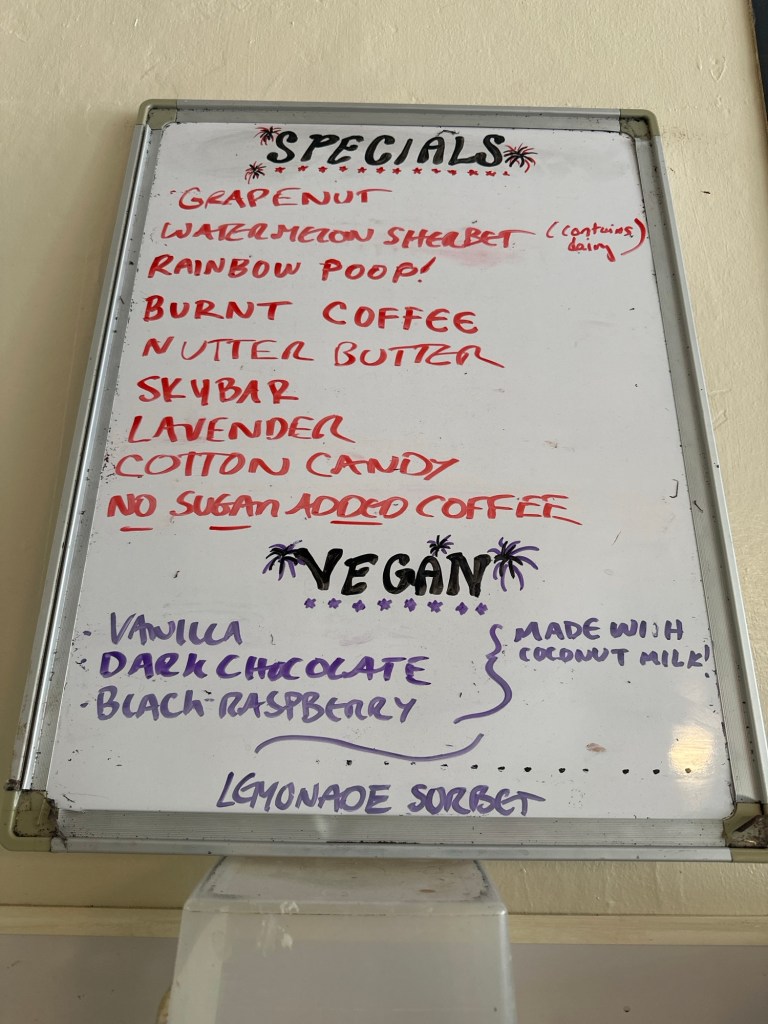 SPECIALS
GRAPENUT
WATERMELON SHERBET (contains dairy)
RAINBOW POOP!
BURNT COFFEE
NUTTER BUTTER
SKYBAR
LAVENDER
COTTON CANDY
NO SUGAR ADDED COFFEE
VEGAN
· VANILLA
· DARK CHOCOLATE
· BLACK RASPBERRY
MADE WITH
COCONUT MILK!
LEMONADE SORBET